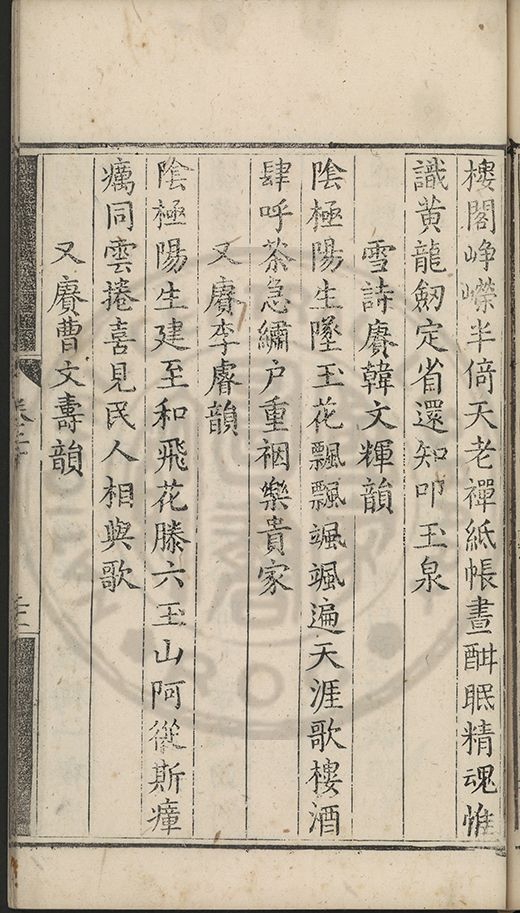 樓閣崢嶸半倚天老禪紙帳晝酣眠精魂惟
識黄龍劒定省還知叩玉泉
雪詩賡韓文輝韻
陰極陽生墜玉花飄飄颯颯遍天涯歌樓酒
肆呼茶急繡户重裀樂貴家
又賡李睿韻
陰極陽生建至和飛花滕六玉山阿從斯瘴
癘同雲捲喜見民人相與歌
又賡曹文壽韻